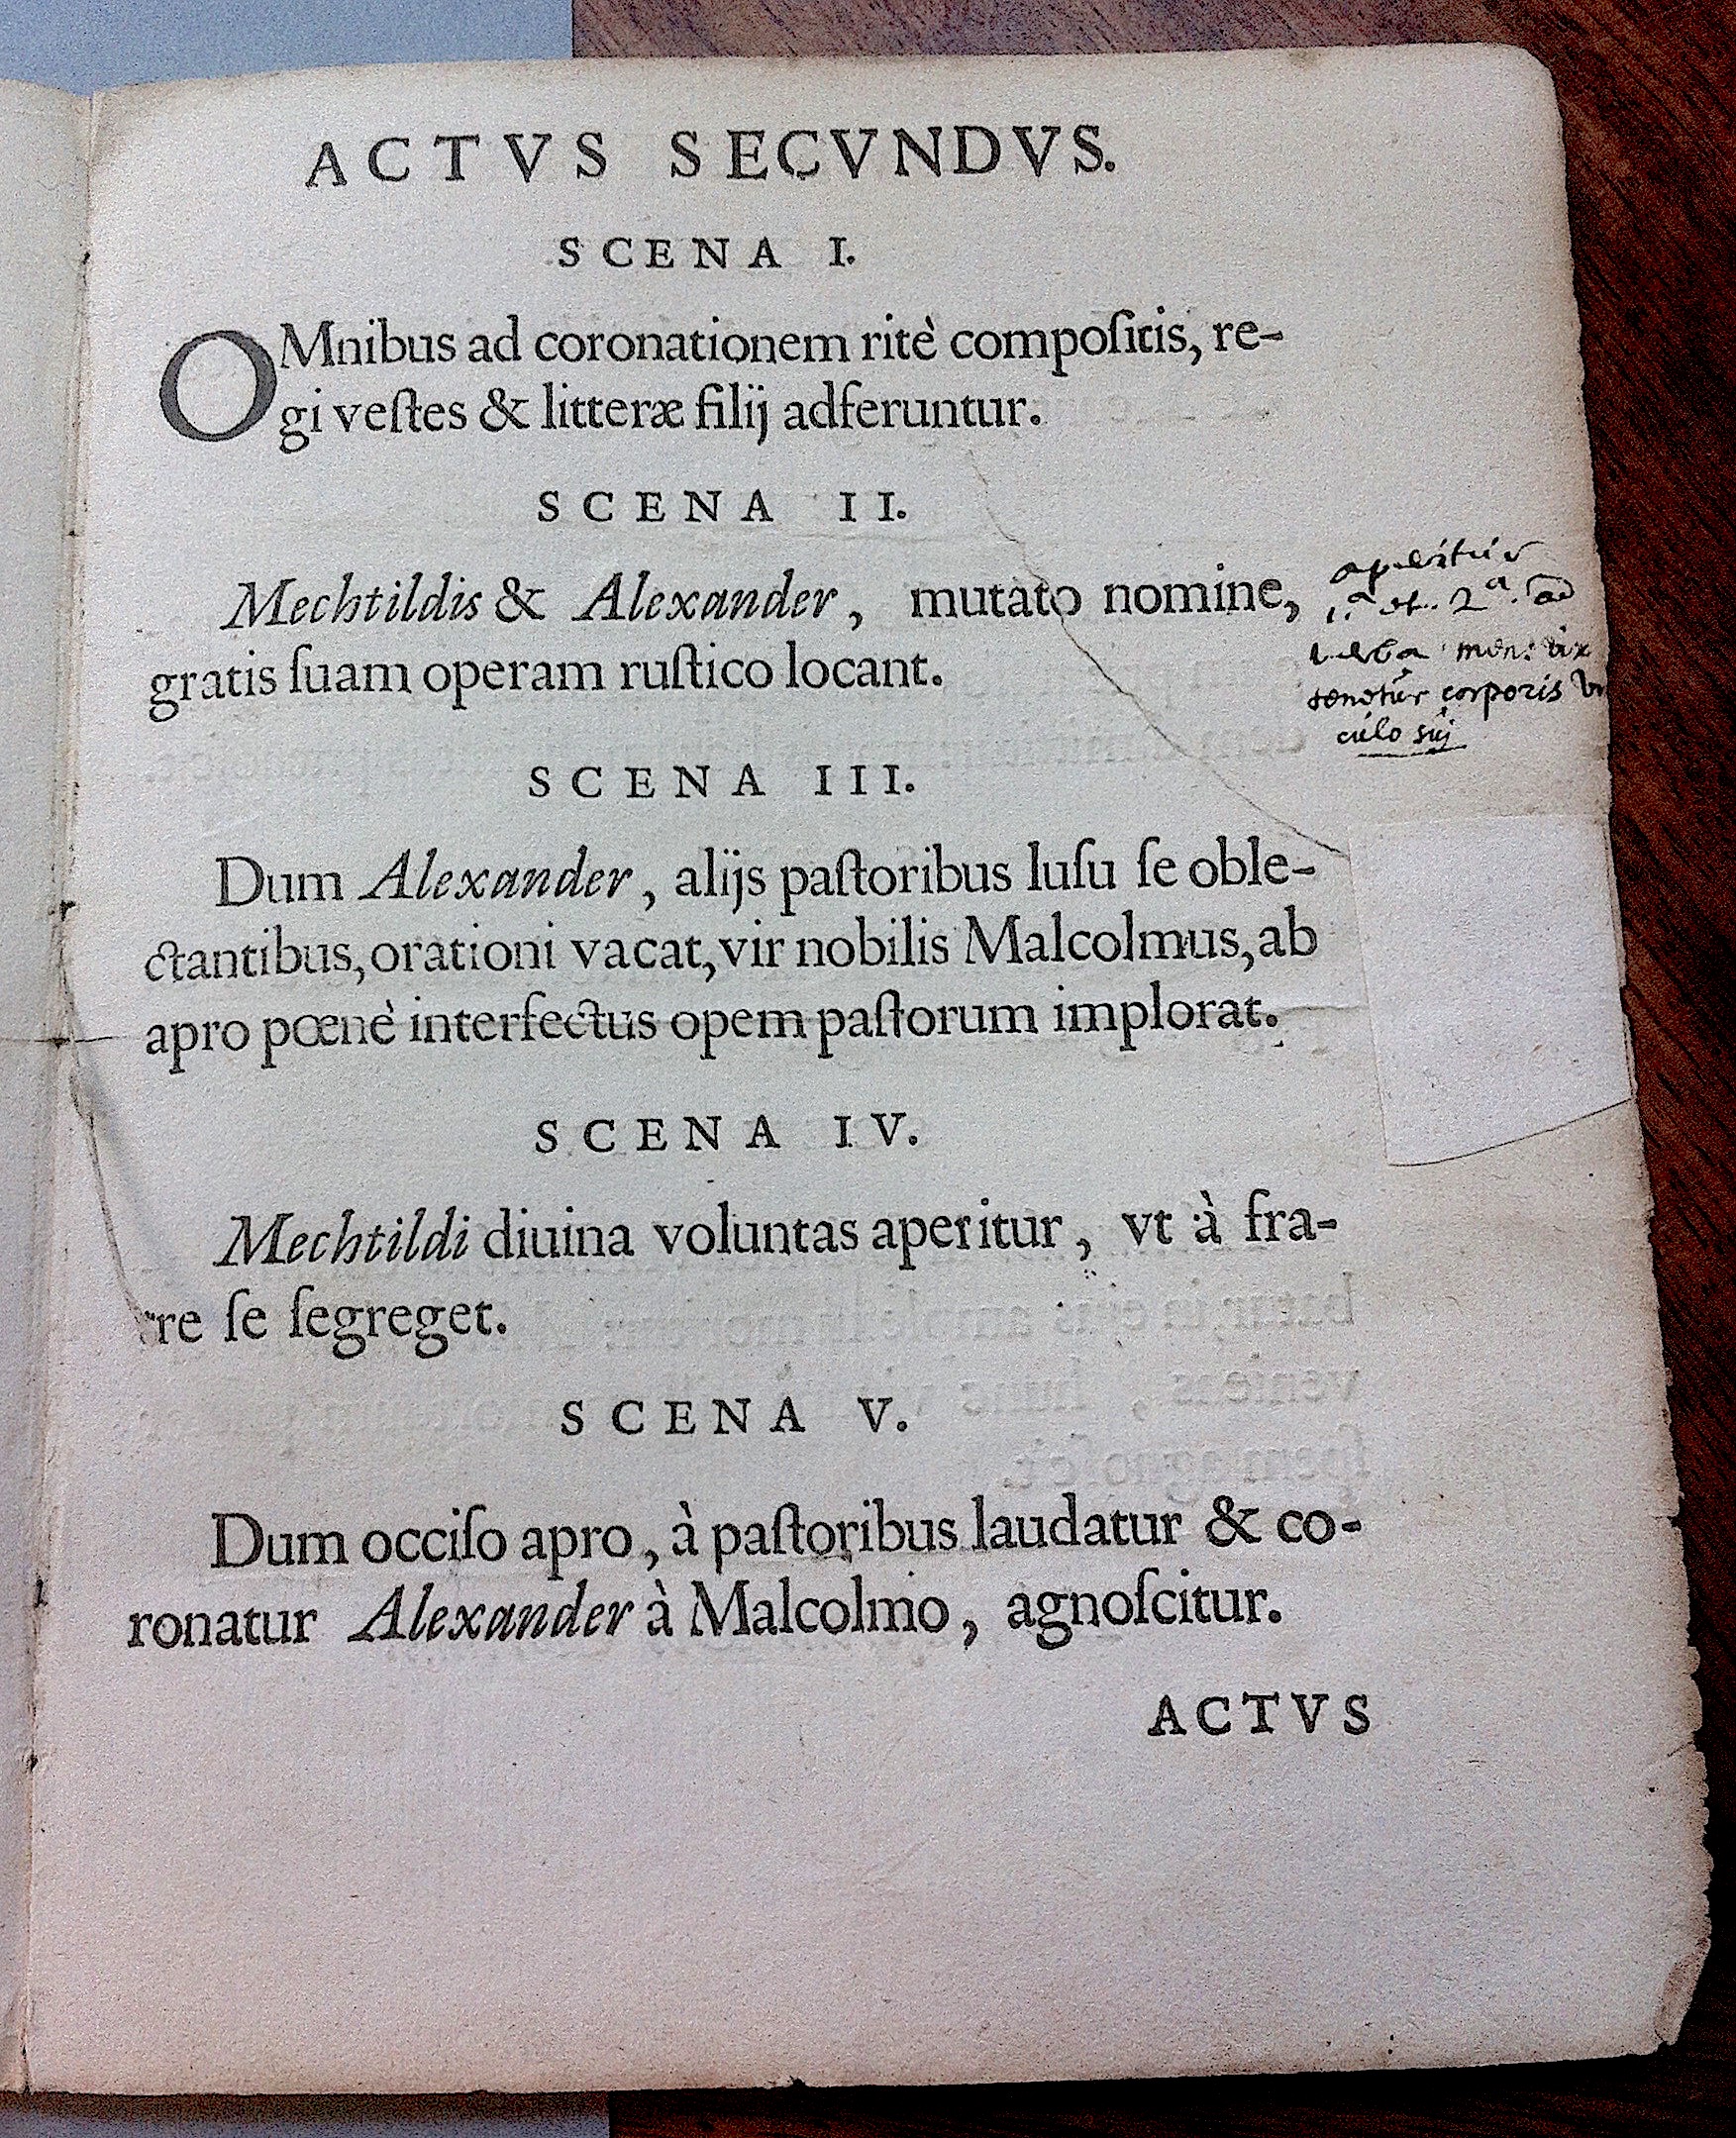 ACTVS SECVNDVS.
SCENA I.
OMnibus ad coronationem ritè compoſitis, re-
gi veſtes & litteræ filij adferuntur.
SCENA II.
Mechtildis & Alexander, mutato nomine,
gratis ſuam operam ruſtico locant.
aperitur
1.ª et. 2ª. ad
verba mens vix
tenetur corporis vin
culo sui
SCENA III.
Dum Alexander, alijs paſtoribus luſu ſe oble-
ctantibus, orationi vacat, vir nobilis Malcolmus, ab
apro pœnè interfectus opem paſtorum implorat.
SCENA IV.
Mechtildi diuina voluntas aperitur, vt à fra-
tre ſe ſegreget.
SCENA V.
Dum occiſo apro, à paſtoribus laudatur & co-
ronatur Alexander à Malcolmo, agnoſcitur.
ACTVS